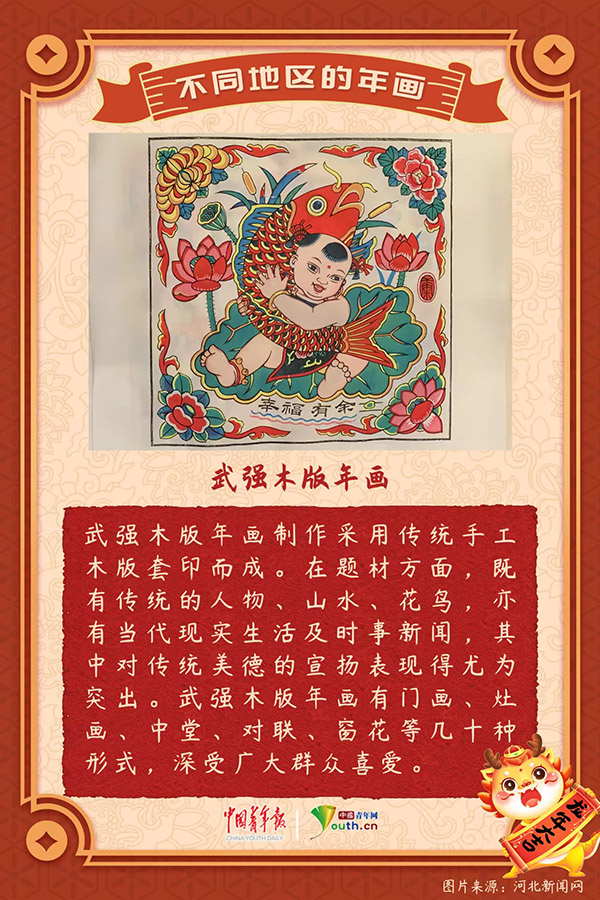 不同地区的年画
幸福有余
武强木版年画
武强木版年画制作采用传统手工
木版套印而成。在题材方面，既
有传统的人物、山水、花鸟，亦
有当代现实生活及时事新闻，其
中对传统美德的宣扬表现得尤为
突出。武强木版年画有门画、灶
画、中堂、对联、窗花等几十种
形式，深受广大群众喜爱。
中国青年报
CHINA YOUTH DAILY
中国青年网
Youth.cn
龙年大吉
图片来源：河北新闻网